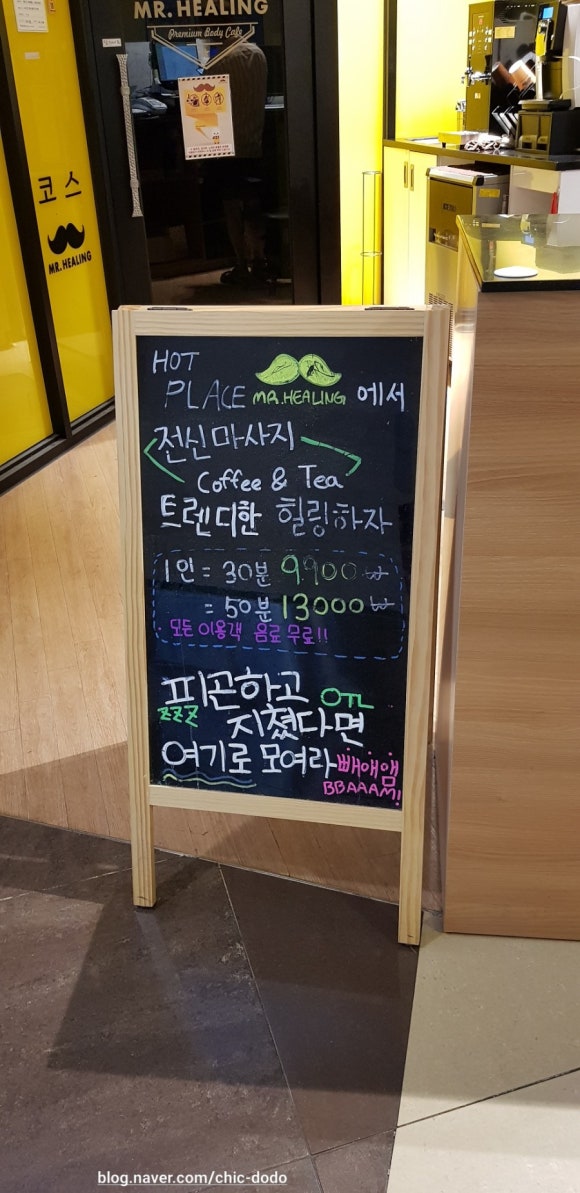 MR. HEALING
Premium Body Cafe
코스
MR.HEALING
HOT
PLACE MR.HEALING 에서
전신마사지
Coffee & Tea
트렌디한 힐링하자
1인 = 30분 9900 ₩
= 50분 13000 ₩
모든 이용객 음료 무료!!
피곤하고 OTL
zzz 지쳤다면
여기로 모여라 빼애앰
BBAAAM!
blog.naver.com/chic-dodo